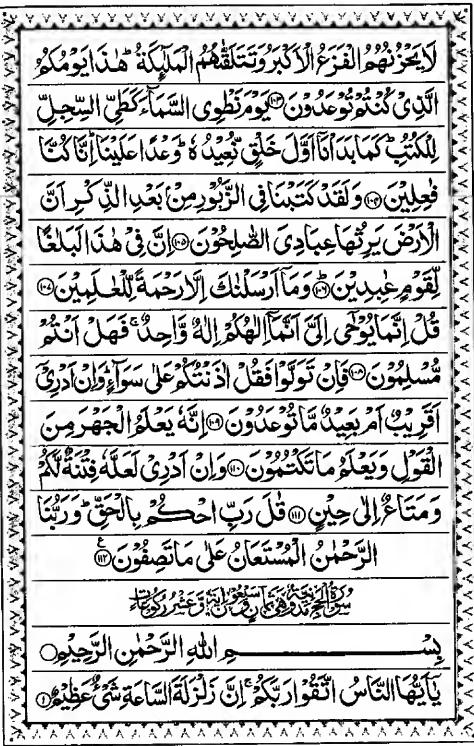 لَا یَحْزُنُهُمُ الْفَزَعُ الْاَكْبَرُ وَتَتَلَقّٰىهُمُ الْمَلٰٓىِٕكَةُ ؕ هٰذَا یَوْمُكُمُ
الَّذِیْ كُنْتُمْ تُوْعَدُوْنَ ﴿۱۰۳﴾ یَوْمَ نَطْوِی السَّمَآءَ كَطَیِّ السِّجِلِّ
لِلْكُتُبِ ؕ كَمَا بَدَاْنَاۤ اَوَّلَ خَلْقٍ نُّعِیْدُهٗ ؕ وَعْدًا عَلَیْنَا ؕ اِنَّا كُنَّا
فٰعِلِیْنَ ﴿۱۰۴﴾ وَلَقَدْ كَتَبْنَا فِی الزَّبُوْرِ مِنْۢ بَعْدِ الذِّكْرِ اَنَّ
الْاَرْضَ یَرِثُهَا عِبَادِیَ الصّٰلِحُوْنَ ﴿۱۰۵﴾ اِنَّ فِیْ هٰذَا لَبَلٰغًا
لِّقَوْمٍ عٰبِدِیْنَ ﴿۱۰۶﴾ وَمَاۤ اَرْسَلْنٰكَ اِلَّا رَحْمَةً لِّلْعٰلَمِیْنَ ﴿۱۰۷﴾
قُلْ اِنَّمَا یُوْحٰۤی اِلَیَّ اَنَّمَاۤ اِلٰهُكُمْ اِلٰهٌ وَّاحِدٌ ۚ فَهَلْ اَنْتُمْ
مُّسْلِمُوْنَ ﴿۱۰۸﴾ فَاِنْ تَوَلَّوْا فَقُلْ اٰذَنْتُكُمْ عَلٰی سَوَآءٍ ؕ وَاِنْ اَدْرِیْۤ
اَقَرِیْبٌ اَمْ بَعِیْدٌ مَّا تُوْعَدُوْنَ ﴿۱۰۹﴾ اِنَّهٗ یَعْلَمُ الْجَهْرَ مِنَ
الْقَوْلِ وَیَعْلَمُ مَا تَكْتُمُوْنَ ﴿۱۱۰﴾ وَاِنْ اَدْرِیْ لَعَلَّهٗ فِتْنَةٌ لَّكُمْ
وَمَتَاعٌ اِلٰی حِیْنٍ ﴿۱۱۱﴾ قٰلَ رَبِّ احْكُمْ بِالْحَقِّ ؕ وَرَبُّنَا
الرَّحْمٰنُ الْمُسْتَعَانُ عَلٰی مَا تَصِفُوْنَ ﴿۱۱۲﴾ ع
سُوْرَةُ الْحَجِّ مَدَنِیَّةٌ وَّهِیَ ثَمَانٍ وَّسَبْعُوْنَ اٰیَةً وَّعَشْرُ رُكُوْعَاتٍ
بِسْمِ اللّٰهِ الرَّحْمٰنِ الرَّحِیْمِ
یٰۤاَیُّهَا النَّاسُ اتَّقُوْا رَبَّكُمْ ۚ اِنَّ زَلْزَلَةَ السَّاعَةِ شَیْءٌ عَظِیْمٌ ﴿۱﴾